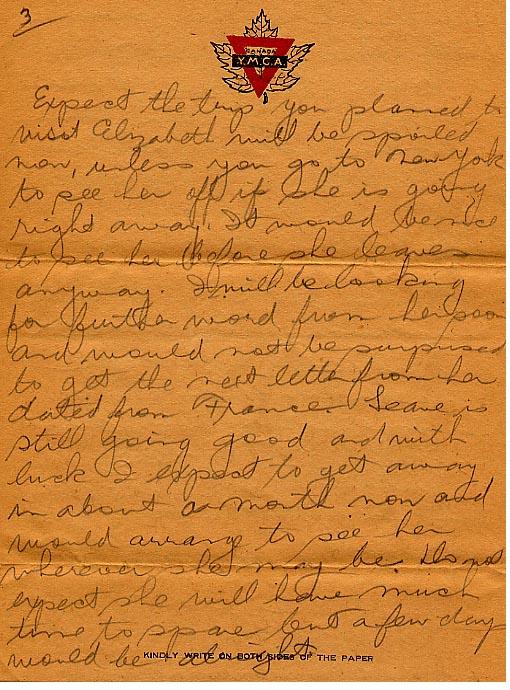 3
CANADA
Y.M.C.A.
Expect the trip you planned to
visit Elizabeth will be spoiled
now, unless you go to New York
to see her off if she is going
right away. It would be nice
to see her before she leaves
anyway. I will be looking
for further word from her soon
and would not be surprised
to get the next letter from her
dated from France. Leave is
still going good and with
luck I expect to get away
in about a month now and
would arrange to see her
wherever she may be. Do not
expect she will have much
time to spare but a few days
would be alright.
KINDLY WRITE ON BOTH SIDES OF THE PAPER